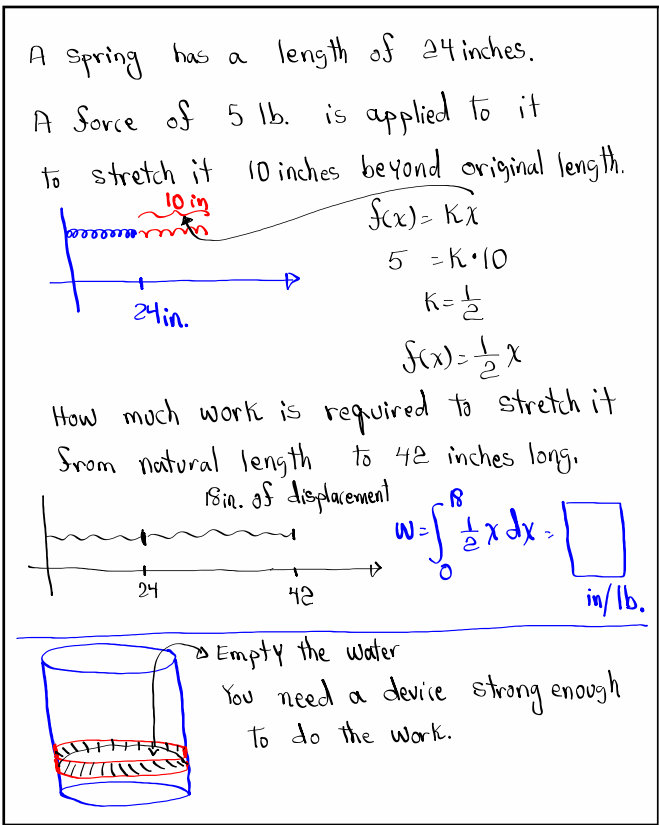 A spring has a length of 24 inches.
A force of 5 lb. is applied to it
to stretch it 10 inches beyond original length.
10 in
f(x) = Kx
5 = K·10
24 in.
K = 1/2
f(x) = 1/2 x
How much work is required to stretch it
from natural length to 42 inches long.
18 in. of displacement
W = ∫₀¹⁸ 1/2 x dx =
24
42
in/lb.
Empty the water
You need a device strong enough
to do the work.